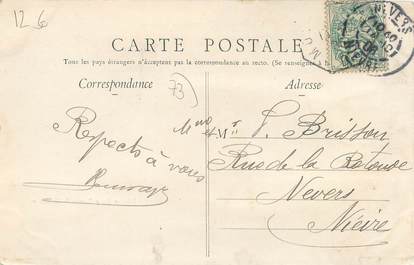 12 6
CARTE POSTALE
Tous les pays étrangers n'acceptent pas la correspondance au recto. (Se renseigner à
Correspondance
Adresse
73
NEVERS
NIEVRE
Respects à vous
Mme et Mr V. Brisson
Rue de la Rotonde
Nevers
Nièvre